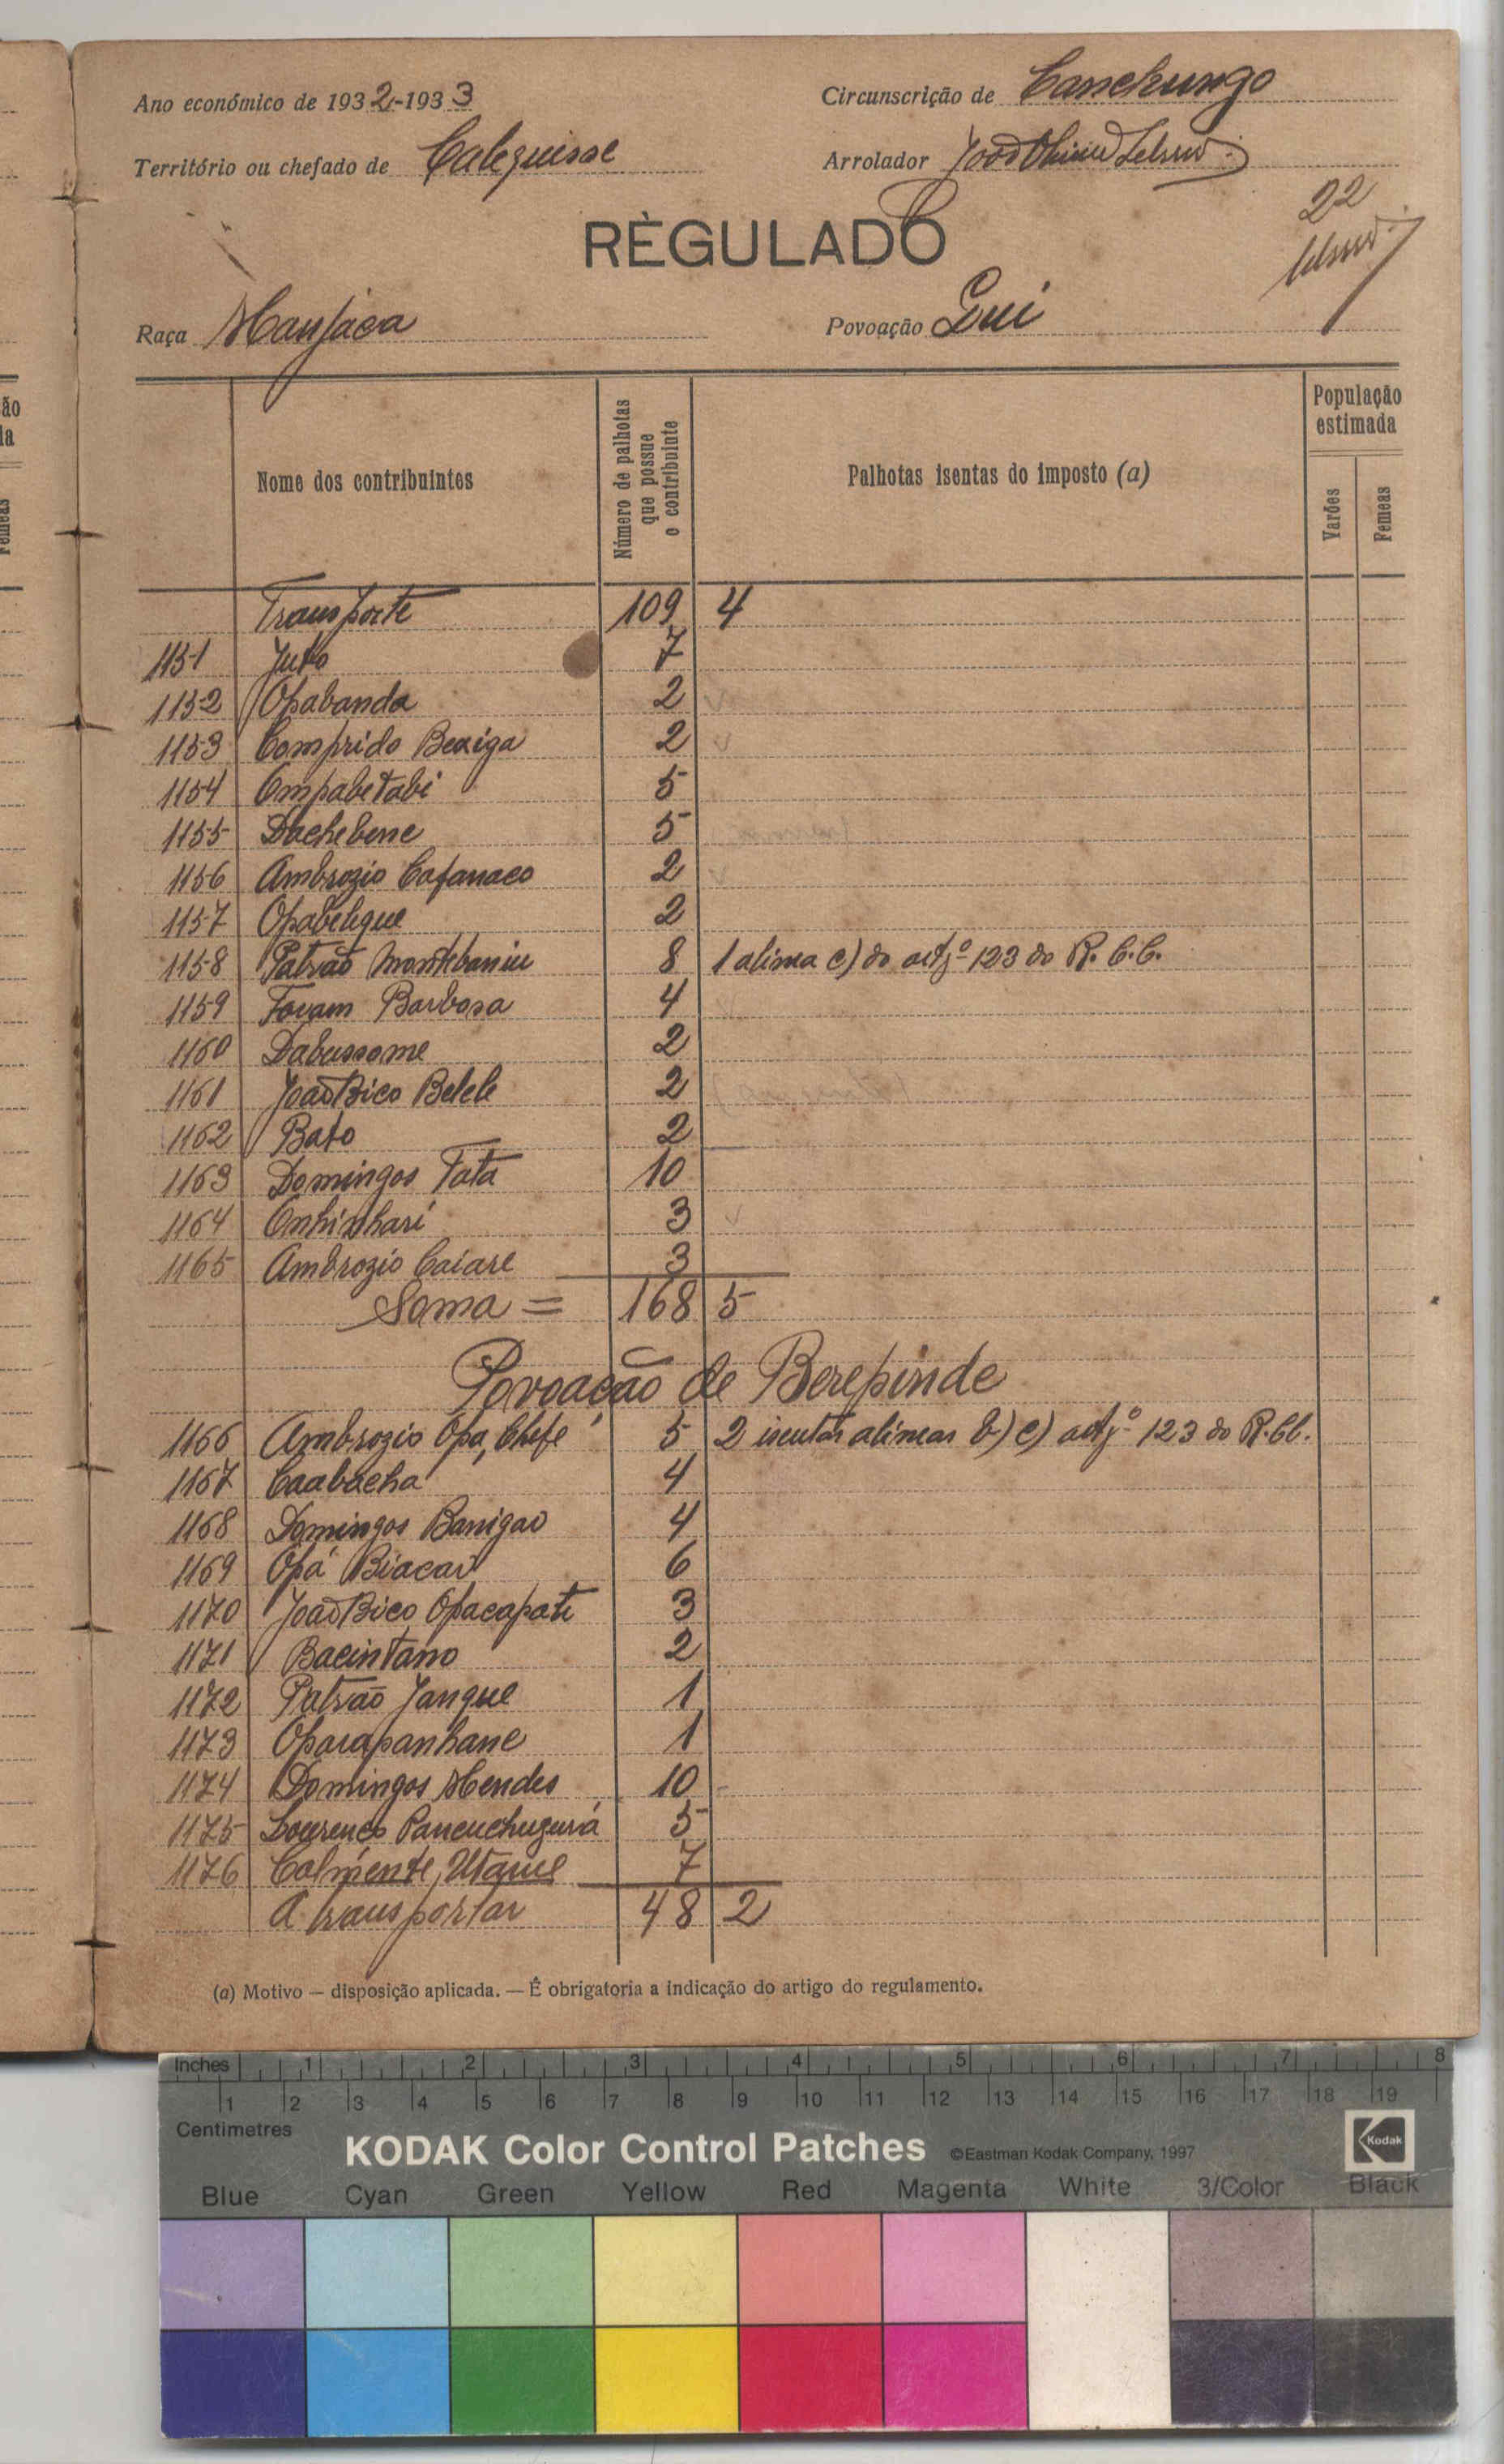 Ano económico de 1932-1933
Circunscrição de Canchungo
Território ou chefado de Calequisse
Arrolador João
22
REGULADO
Raça Manjaca
Povoação Gui
Nome dos contribuintes
Número de palhotas que possue o contribuinte
Palhotas isentas do imposto (a)
População estimada
Varões
Femeas
Transporte 109 4
1151 Juto 7
1152 Opabanda 2
1153 Comprido Bexiga 2
1154 Ompabetabi 5
1155 Dachebene 5
1156 Ambrozio Cafanaco 2
1157 Opabelique 2
1158 Patrão 8 1 alinea c) do artº 123 do R. C. C.
1159 Tovam Barbosa 4
1160 Dabussame 2
1161 João Bico Belele 2
1162 Bato 2
1163 Domingos Tata 10
1164 Onhinhari 3
1165 Ambrozio Caiare 3
Soma = 168 5
Povoação de Berepinde
1166 Ambrozio Opa, Chefe 5 2 isentas alineas b) c) artº 123 do R.CC.
1167 Caabacha 4
1168 Domingos Banigao 4
1169 Opá Biacao 6
1170 João Bico Opacapate 3
1171 Bacintano 2
1172 Patrão Janque 1
1173 Oparapanhane 1
1174 Domingos Mendes 10
1175 Lourenço Pancuchugurá 5
1176 Calmente, Utaque 7
A transportar 48 2
(a) Motivo — disposição aplicada. — É obrigatoria a indicação do artigo do regulamento.
ão
la
Femeas
Inches 1 2 3 4 5 6 7 8
1 2 3 4 5 6 7 8 9 10 11 12 13 14 15 16 17 18 19
Centimetres
KODAK Color Control Patches ©Eastman Kodak Company, 1997 Kodak
Blue Cyan Green Yellow Red Magenta White 3/Color Black